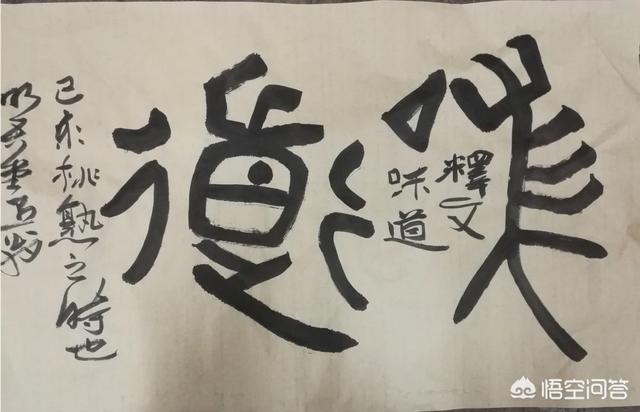 味道
釋文
味道
己亥桃熟之時也
悟空问答